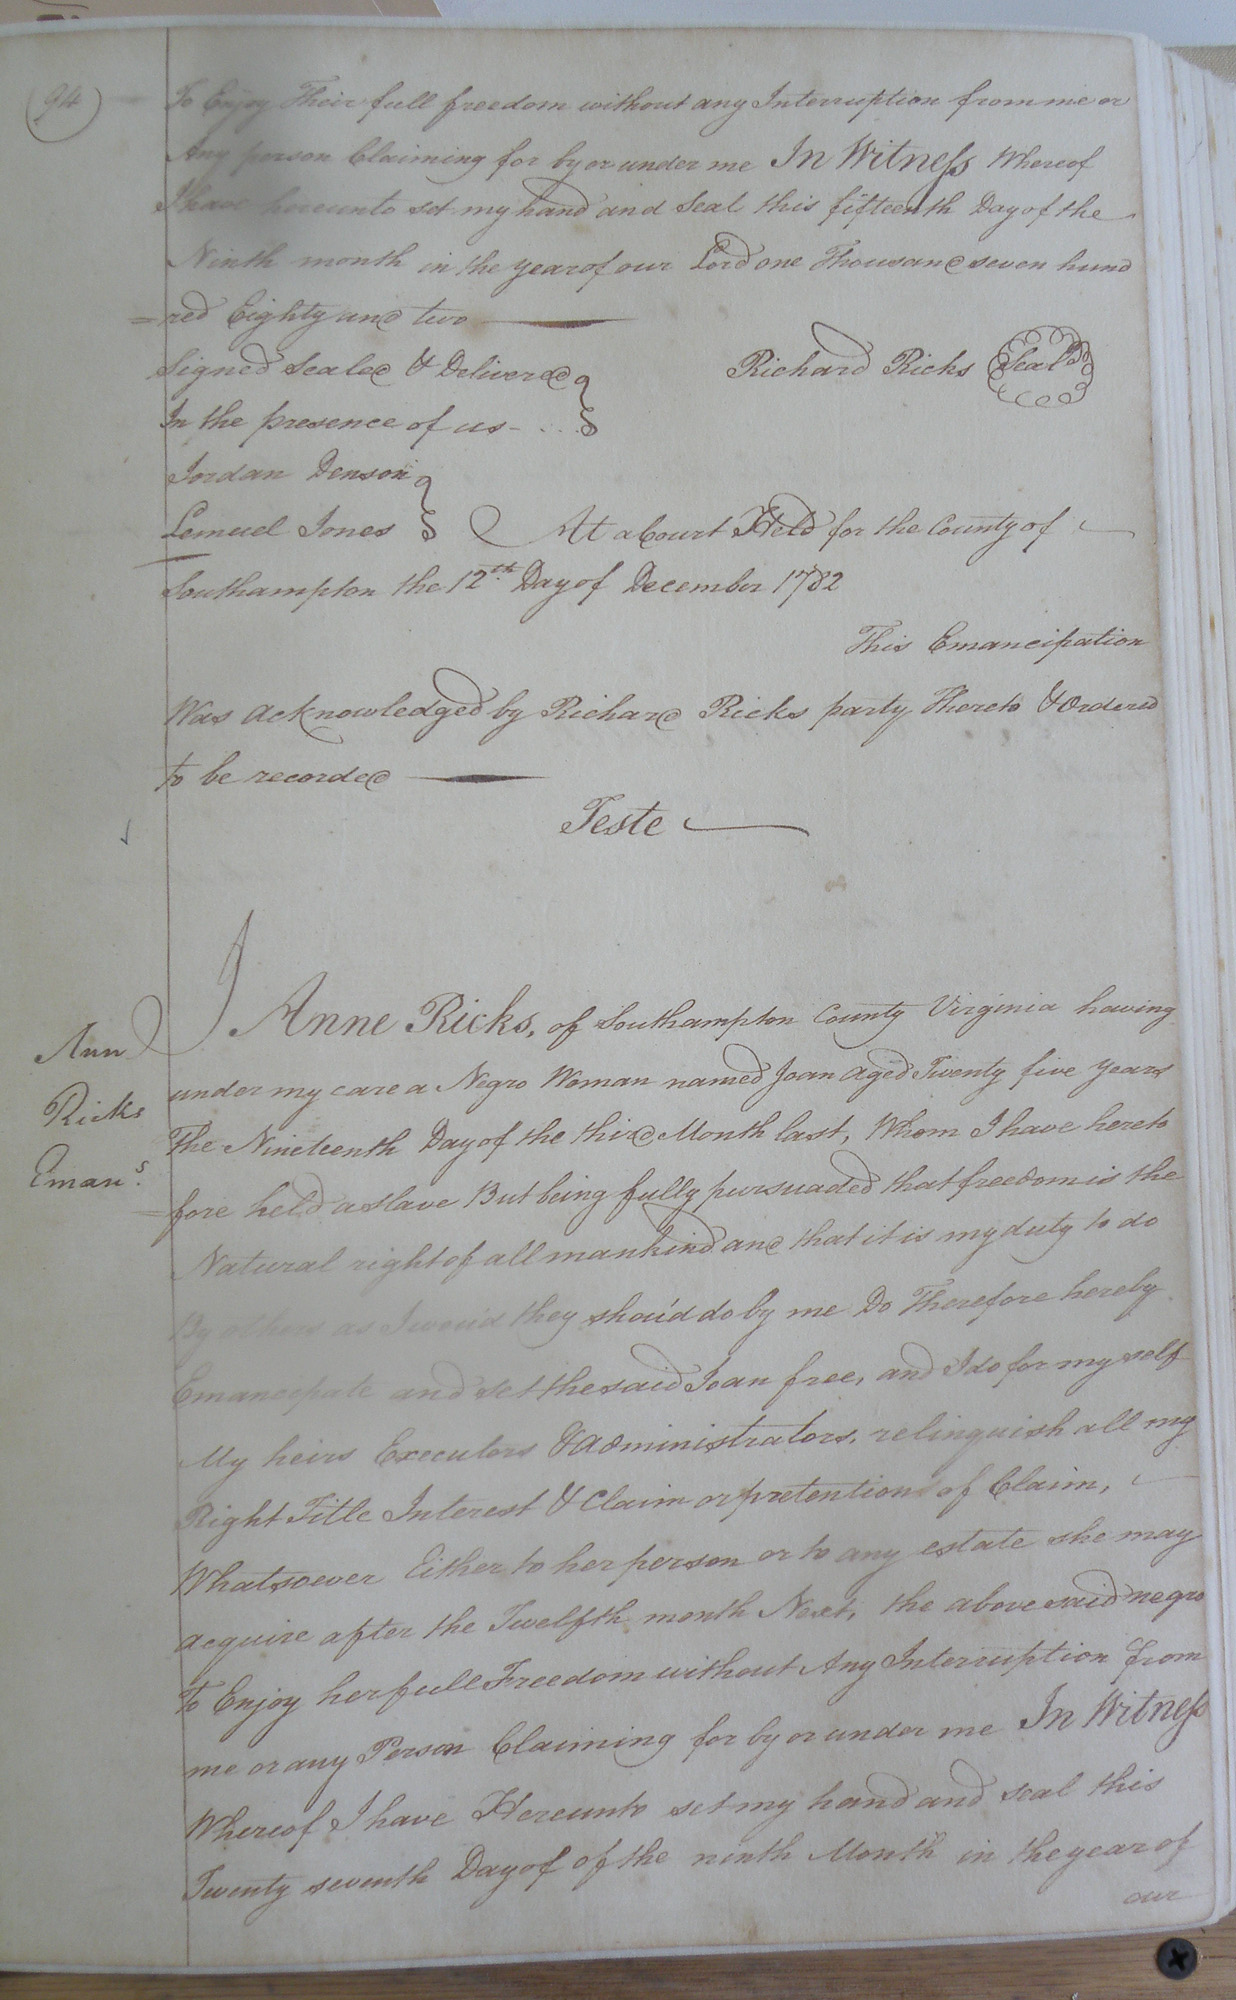 94
To Enjoy Their full freedom without any Interruption from me or
Any person Claiming for by or under me In Witness Whereof
I have hereunto set my hand and Seal this fifteenth Day of the
Ninth month in the year of our Lord one Thousand seven hund
=red Eighty and two
Signed Sealed & Delivered
In the presence of us - . . .
Richard Ricks Seal
Jordan Denson
Lemuel Jones
At a Court Held for the County of
Southampton the 12th Day of December 1782
This Emancipation
Was acknowledged by Richard Ricks party Thereto & Ordered
to be recorded
Teste
Ann
Ricks
Emans.
I Anne Ricks, of Southampton County Virginia having
under my care a Negro Woman named Joan aged Twenty five years
The Nineteenth Day of the third Month last, Whom I have hereto
=fore held a slave But being fully pursuaded that freedom is the
Natural right of all mankind and that it is my duty to do
By others as I wou'd they shou'd do by me Do Therefore hereby
Emancipate and set the said Joan free, and I do for my self
My heirs Executors & administrators, relinquish all my
Right Title Interest & Claim or pretentions of Claim,
Whatsoever Either to her person or to any estate she may
acquire after the Twelfth month Next, the above said negro
To Enjoy her full Freedom without Any Interruption from
me or any Person Claiming for by or under me In Witness
Whereof I have Hereunto set my hand and seal this
Twenty seventh Day of of the ninth Month in the year of
our